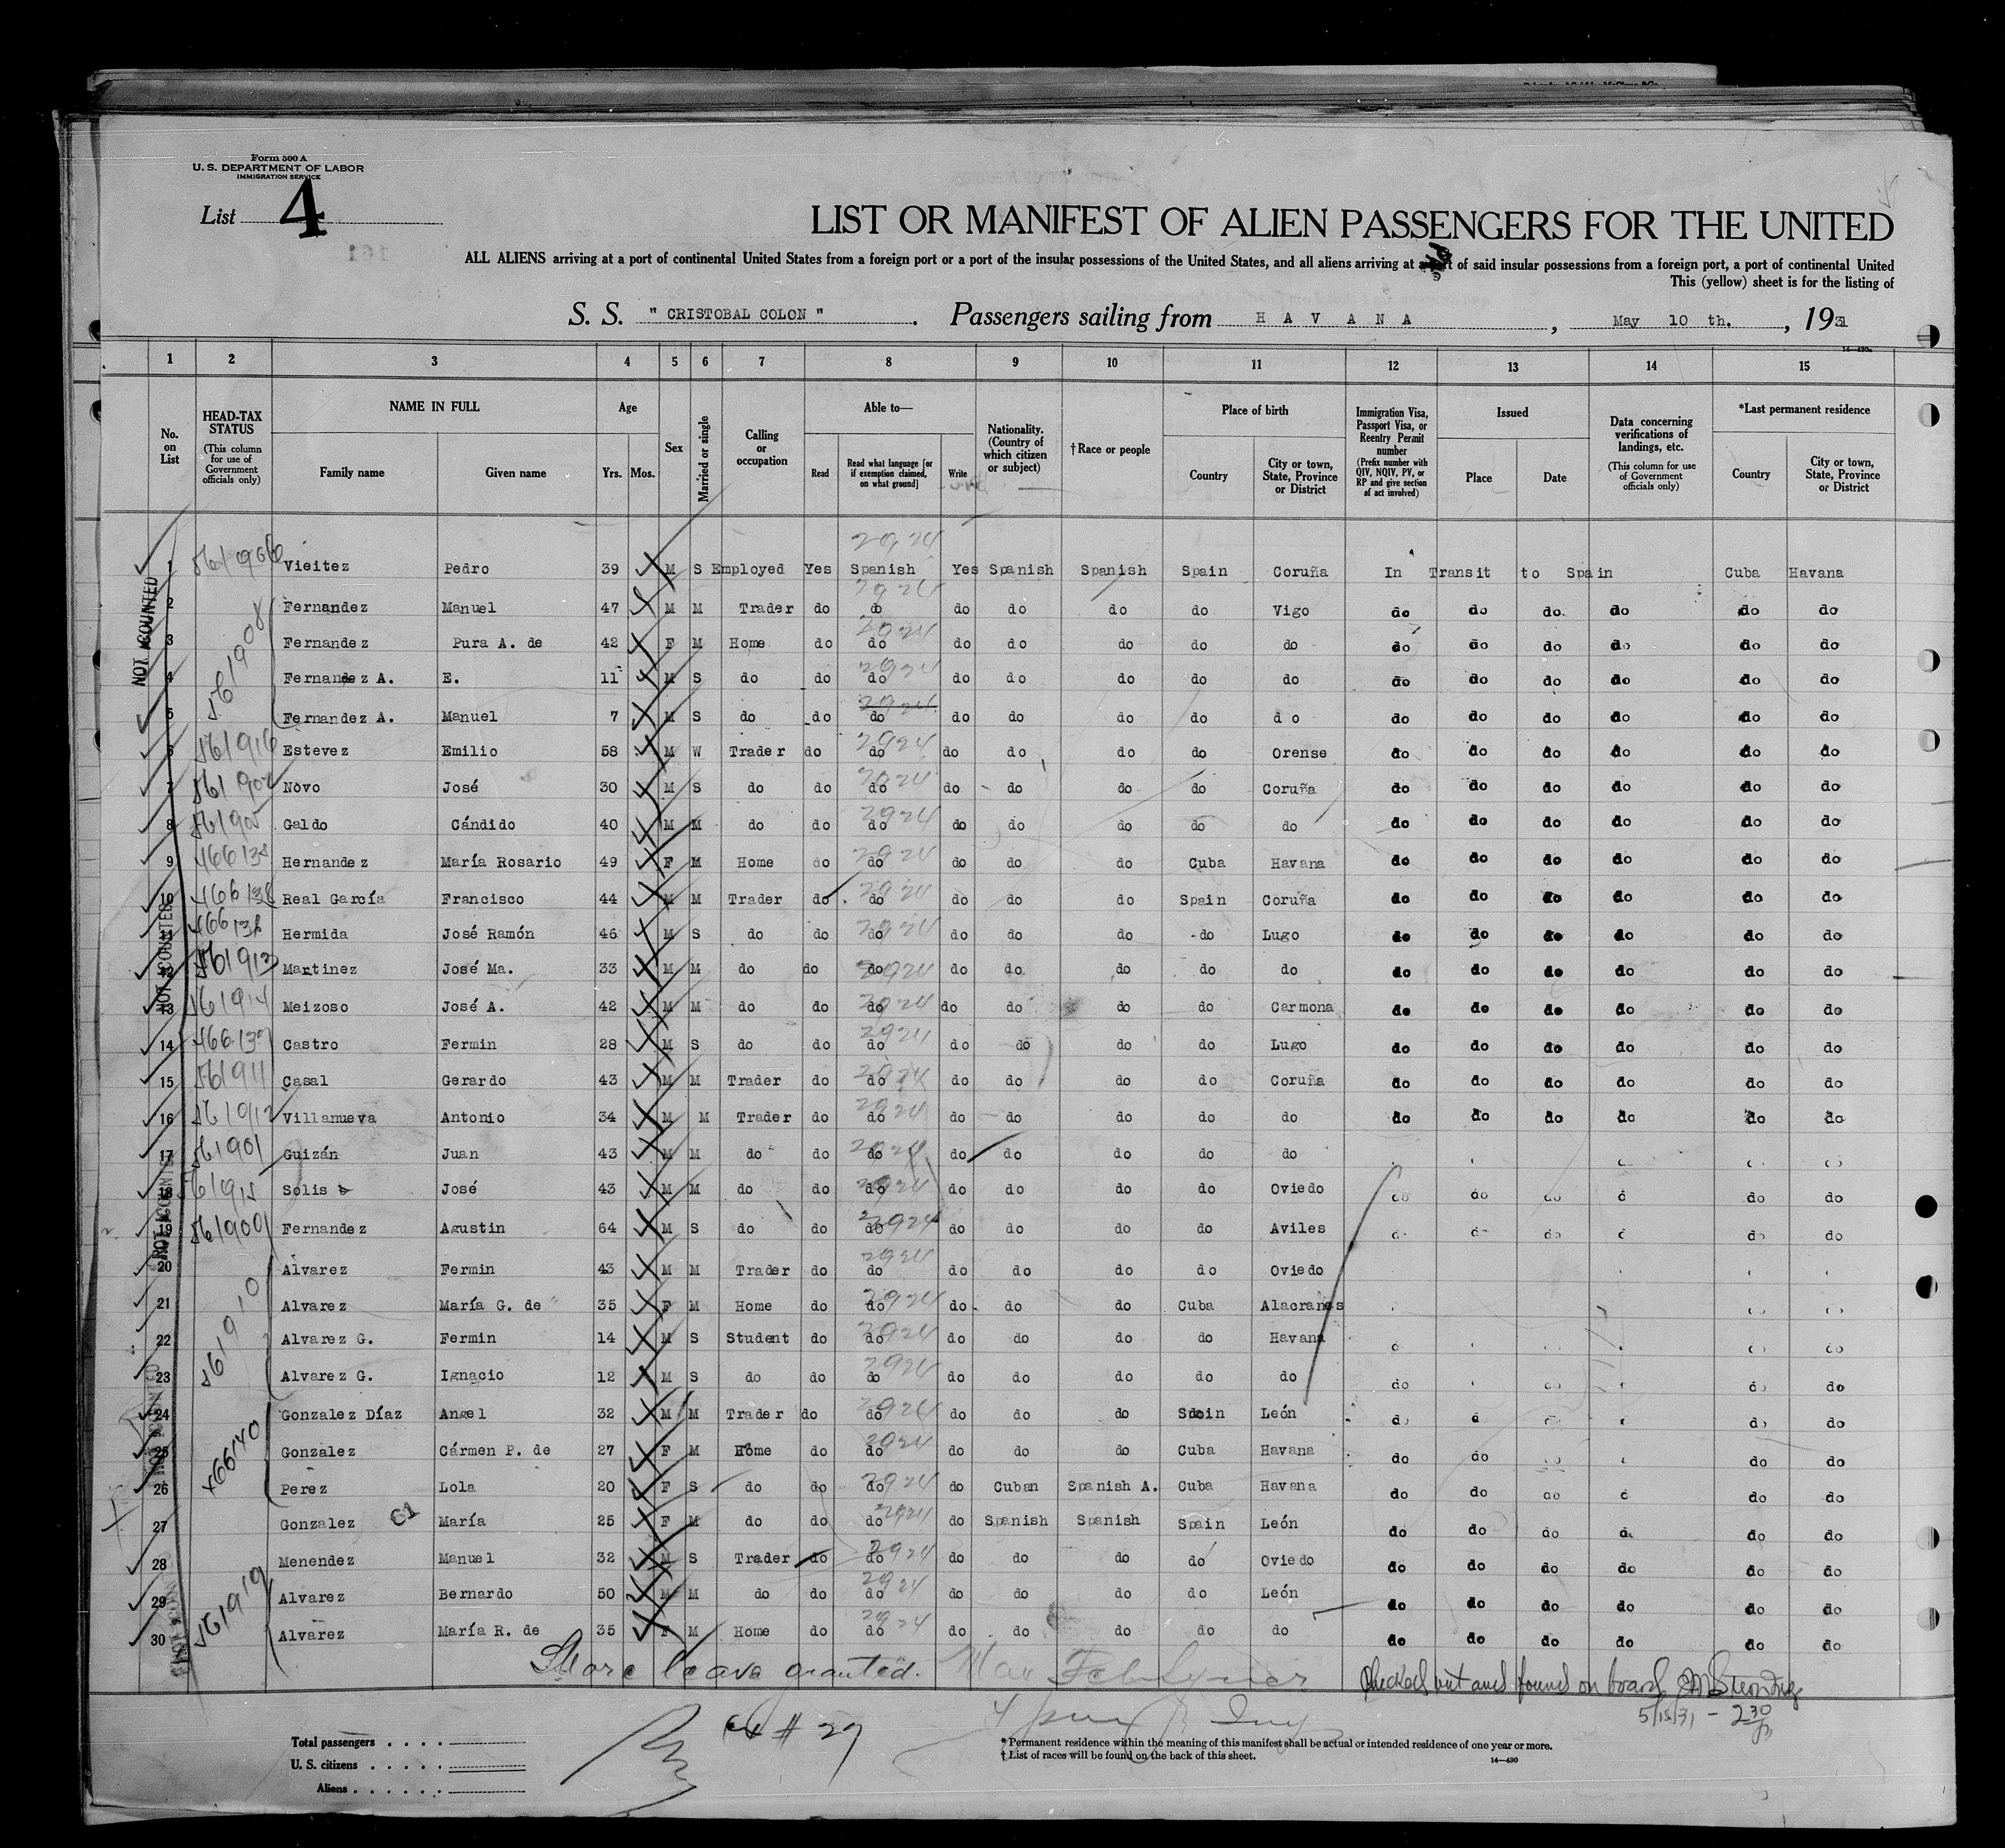 Form 500 A
U. S. DEPARTMENT OF LABOR
IMMIGRATION SERVICE
List 4
LIST OR MANIFEST OF ALIEN PASSENGERS FOR THE UNITED
ALL ALIENS arriving at a port of continental United States from a foreign port or a port of the insular possessions of the United States, and all aliens arriving at a port of said insular possessions from a foreign port, a port of continental United
This (yellow) sheet is for the listing of
S. S. " CRISTOBAL COLON " . Passengers sailing from H A V A N A , May 10 th. , 1931
1 2 3 4 5 6 7 8 9 10 11 12 13 14 15
No. on List
HEAD-TAX STATUS (This column for use of Government officials only)
NAME IN FULL Family name Given name
Age Yrs. Mos.
Sex
Married or single
Calling or occupation
Able to— Read Read what language [or if exemption claimed, on what ground] Write
Nationality. (Country of which citizen or subject)
†Race or people
Place of birth Country City or town, State, Province or District
Immigration Visa, Passport Visa, or Reentry Permit number (Prefix number with QIV, NQIV, PV, or RP and give section of act involved)
Issued Place Date
Data concerning verifications of landings, etc. (This column for use of Government officials only)
*Last permanent residence Country City or town, State, Province or District
NOT COUNTED
1 Vieitez Pedro 39 M S Employed Yes Spanish Yes Spanish Spanish Spain Coruña In Transit to Spain Cuba Havana
2 Fernandez Manuel 47 M M Trader do do do do do do Vigo do do do do do do
3 Fernandez Pura A. de 42 F M Home do do do do do do do do do do do do do
4 Fernandez A. E. 11 M S do do do do do do do do do do do do do do
5 Fernandez A. Manuel 7 M S do do do do do do do do do do do do do do
6 561916 Estevez Emilio 58 M W Trader do do do do do do Orense do do do do do do
7 561902 Novo José 30 M S do do do do do do do Coruña do do do do do do
8 56190 Galdo Cándido 40 M M do do do do do do do do do do do do do do
9 Hernandez María Rosario 49 F M Home do do do do do Cuba Havana do do do do do do
10 Real García Francisco 44 M M Trader do do do do do Spain Coruña do do do do do do
11 Hermida José Ramón 46 M S do do do do do do do Lugo do do do do do do
12 561913 Martinez José Ma. 33 M M do do do do do do do do do do do do do do
13 561914 Meizoso José A. 42 M M do do do do do do do Carmona do do do do do do
14 Castro Fermin 28 M S do do do do do do do Lugo do do do do do do
15 561911 Casal Gerardo 43 M M Trader do do do do do do Coruña do do do do do do
16 561912 Villanueva Antonio 34 M M Trader do do do do do do do do do do do do do
17 561901 Guizán Juan 43 M M do do do do do do do do
18 561915 Solis José 43 M M do do do do do do do Oviedo do do do do do
19 Fernandez Agustin 64 M S do do do do do do do Aviles do do
20 Alvarez Fermin 43 M M Trader do do do do do do Oviedo
21 Alvarez María G. de 35 F M Home do do do do do Cuba Alacranes
22 Alvarez G. Fermin 14 M S Student do do do do do do Havana
23 561910 Alvarez G. Ignacio 12 M S do do do do do do do do do do
24 Gonzalez Díaz Angel 32 M M Trader do do do do do Spain León do do do
25 Gonzalez Cármen P. de 27 F M Home do do do do do Cuba Havana do do do do
26 Perez Lola 20 F S do do do do Cuban Spanish A. Cuba Havana do do do do do
27 Gonzalez María 25 F M do do do do Spanish Spanish Spain León do do do do do do
28 Menendez Manuel 32 M S Trader do do do do do do Oviedo do do do do do do
29 561919 Alvarez Bernardo 50 M M do do do do do do do León do do do do do do
30 Alvarez María R. de 35 F M Home do do do do do do do do do do do do do
Shore leave granted.
Checked out and found on board
5/15/31 - 2 30
# 27
Total passengers
U. S. citizens
Aliens
* Permanent residence within the meaning of this manifest shall be actual or intended residence of one year or more.
† List of races will be found on the back of this sheet.
14—430